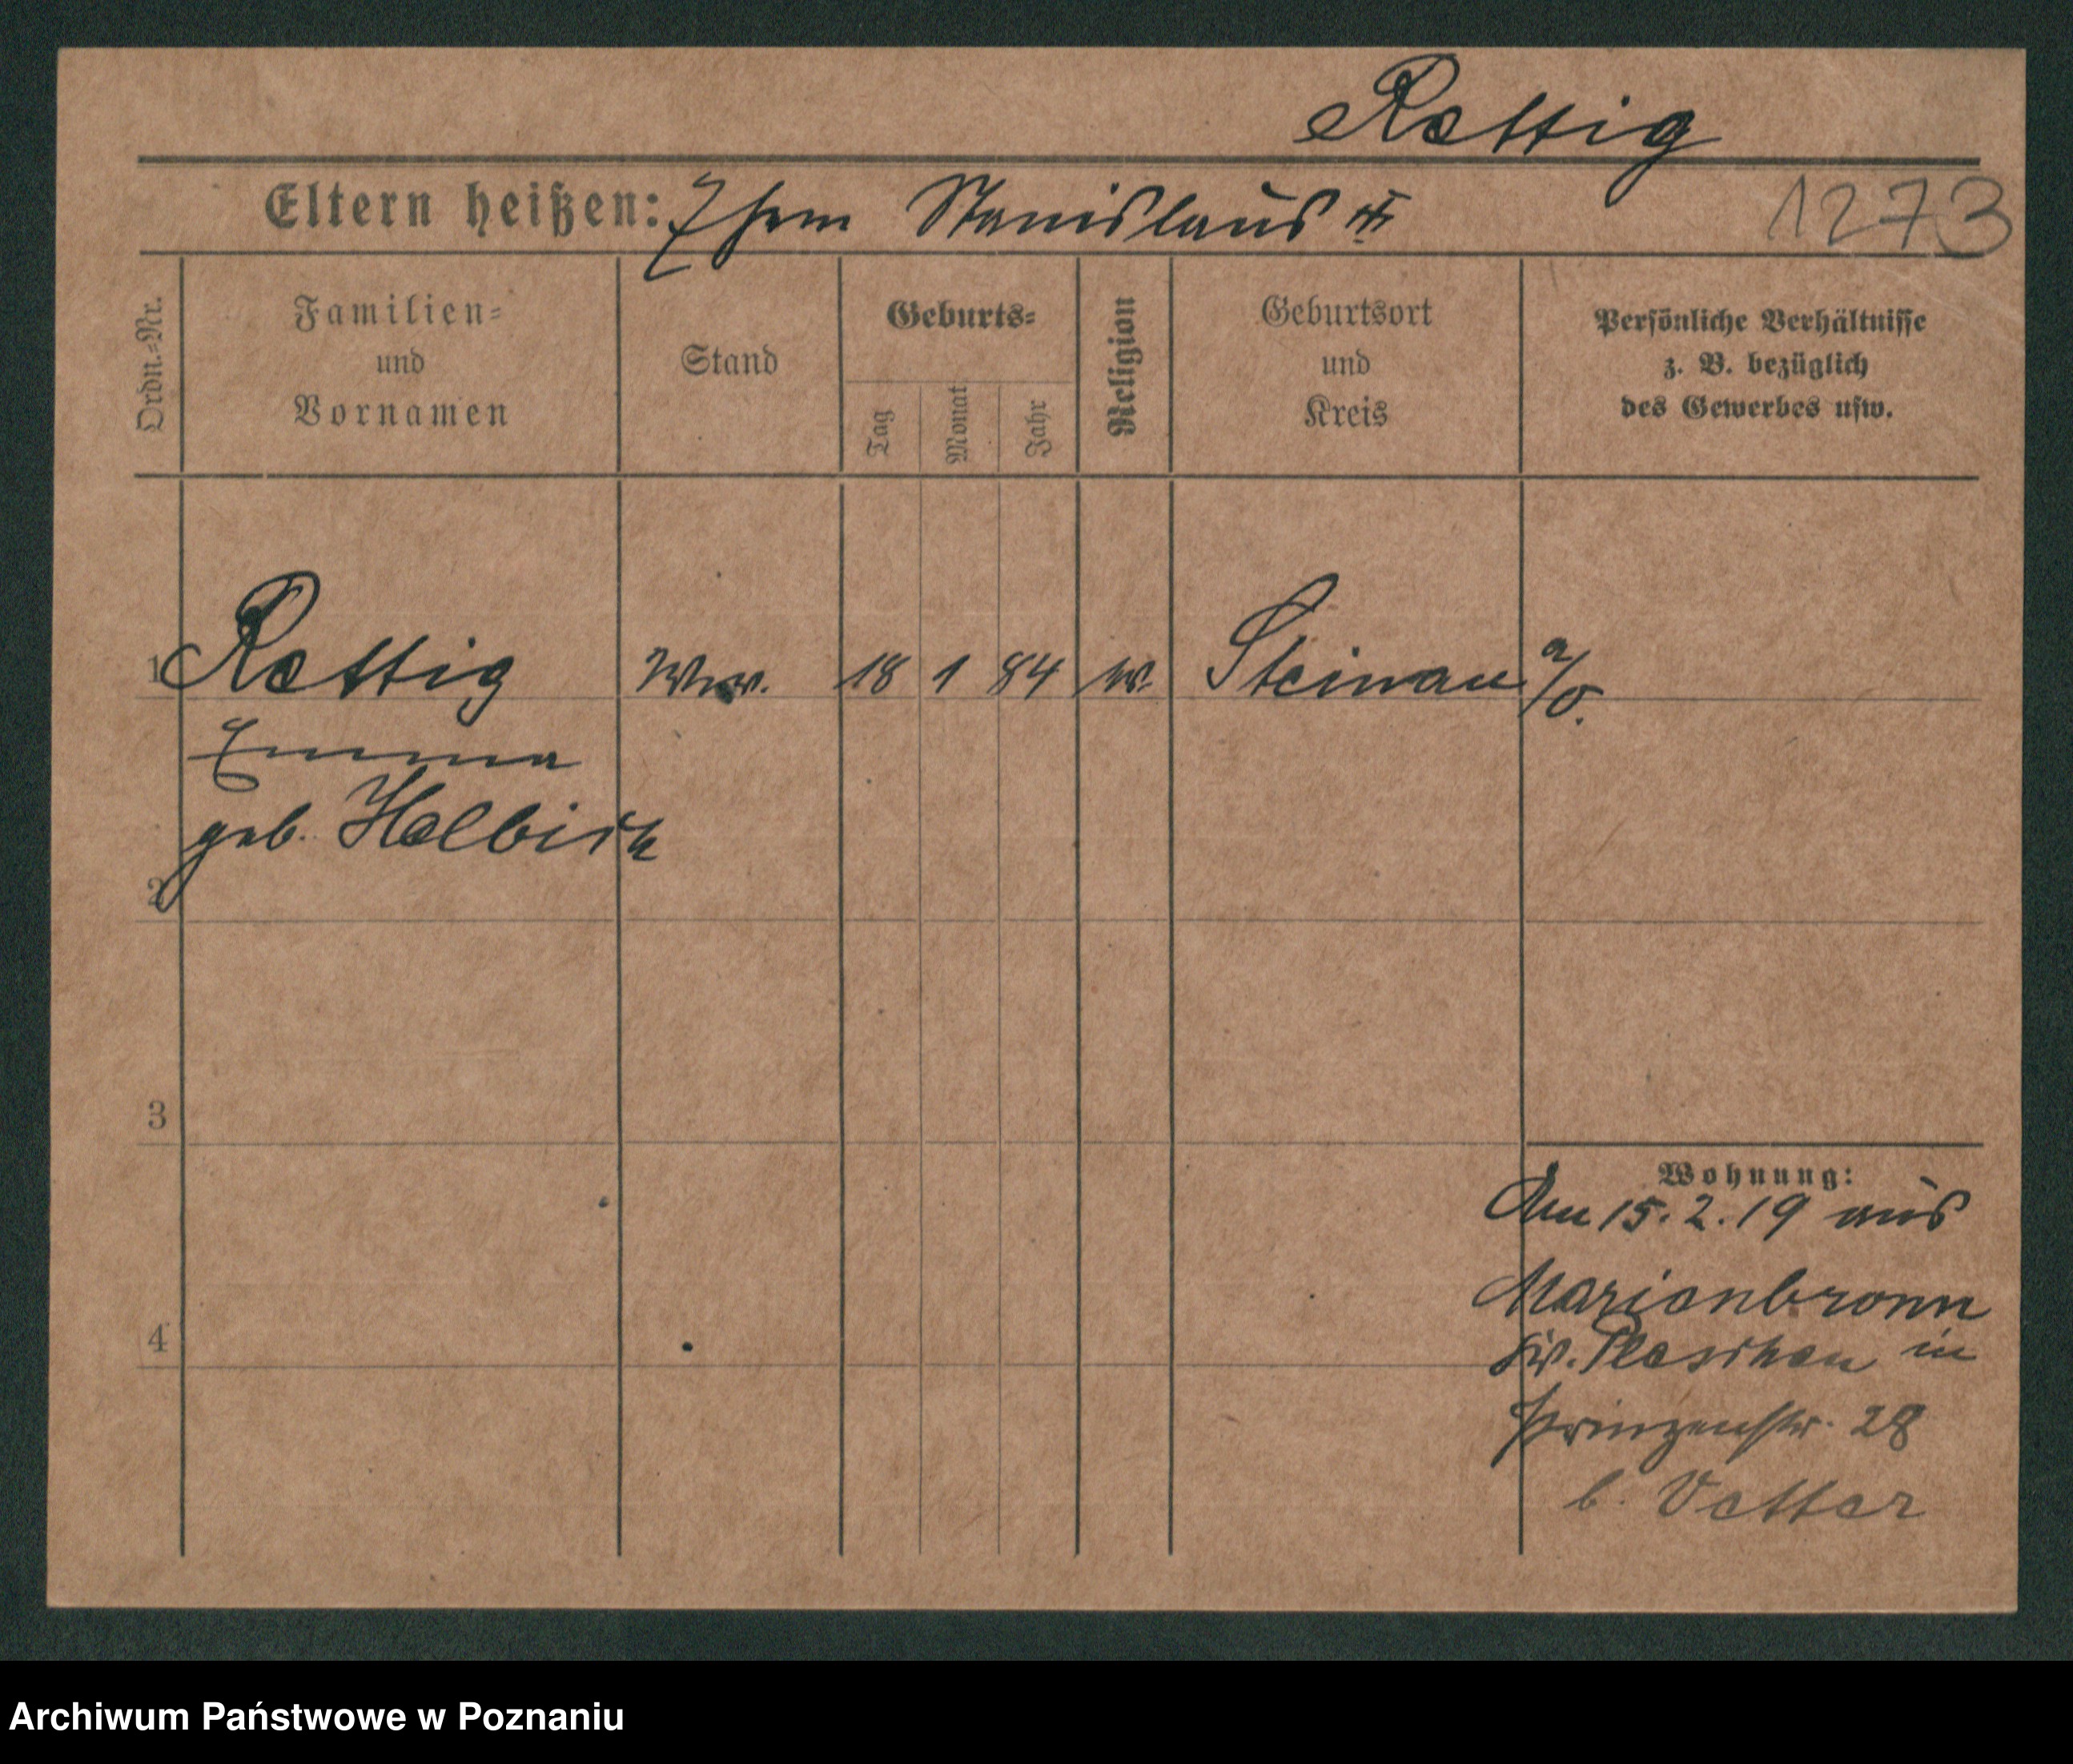 Rettig
Eltern heißen: Ehem Stanislaus
1273
Ordn.-Nr.
Familien-
und
Vornamen
Stand
Geburts-
Tag
Monat
Jahr
Religion
Geburtsort
und
Kreis
Persönliche Verhältnisse
z. B. bezüglich
des Gewerbes usw.
1 Rettig Wwe. 18 1 84 Steinau a/O.
Emma
geb. Halbich
2
3
4
Wohnung:
Am 15.2.19 aus
Marienbronn
Kr. Pleschen in
Prinzenstr. 28
b. Vetter
Archiwum Państwowe w Poznaniu